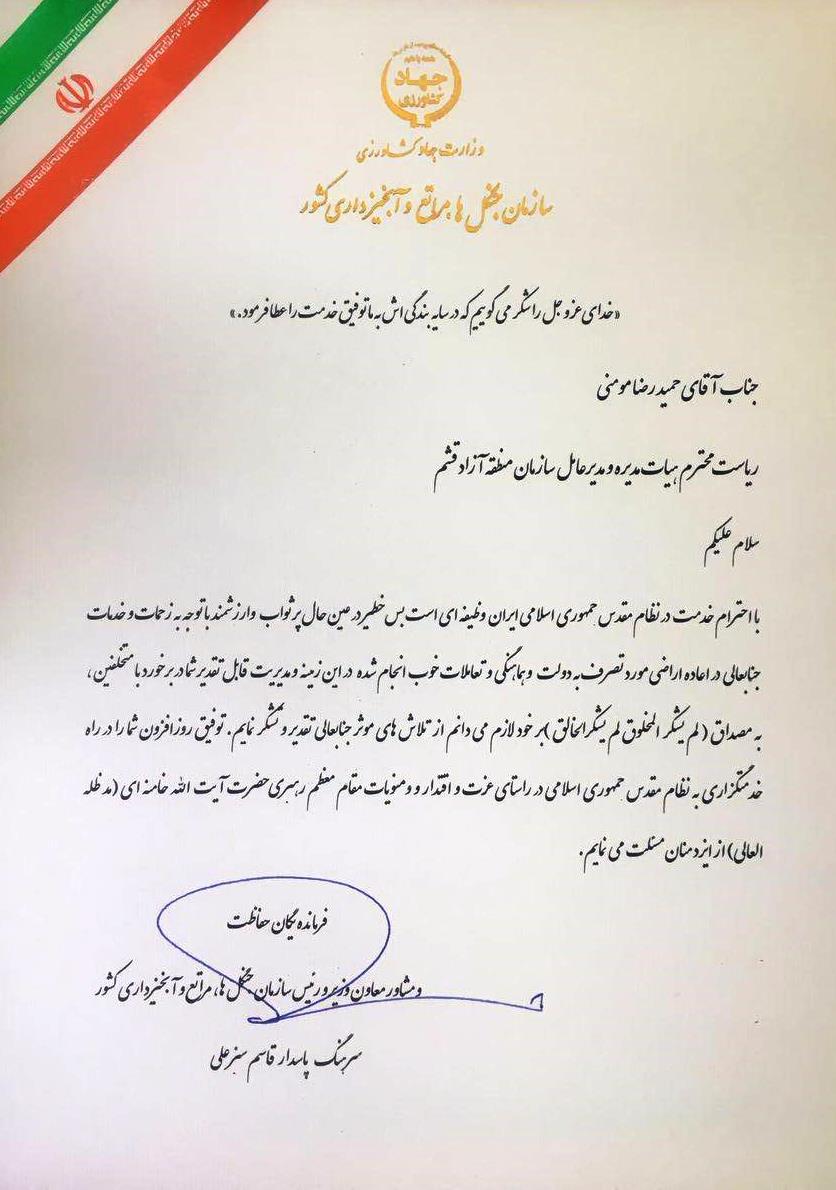 همه با هم
جهاد
کشاورزی
وزارت جهاد کشاورزی
سازمان جنگل ها، مراتع و آبخیزداری کشور
«خدای عزوجل را شکر می گوییم که در سایه بندگی اش به ما توفیق خدمت را عطا فرمود.»
جناب آقای حمیدرضا مومنی
ریاست محترم هیات مدیره و مدیرعامل سازمان منطقه آزاد قشم
سلام علیکم
با احترام خدمت در نظام مقدس جمهوری اسلامی ایران وظیفه ای است بس خطیر در عین حال پر ثواب و ارزشمند با توجه به زحمات و خدمات
جنابعالی در اعاده اراضی مورد تصرف به دولت و هماهنگی و تعاملات خوب انجام شده در این زمینه و مدیریت قابل تقدیر شما در برخورد با متخلفین،
به مصداق (لم یشکر المخلوق لم یشکر الخالق) بر خود لازم می دانم از تلاش های موثر جنابعالی تقدیر و تشکر نمایم. توفیق روزافزون شما را در راه
خدمتگزاری به نظام مقدس جمهوری اسلامی در راستای عزت و اقتدار و ومنویات مقام معظم رهبری حضرت آیت الله خامنه ای (مد ظله
العالی) از ایزد منان مسئلت می نمایم.
فرمانده یگان حفاظت
و مشاور معاون وزیر و رئیس سازمان جنگل ها، مراتع و آبخیزداری کشور
سرهنگ پاسدار قاسم سبزعلی